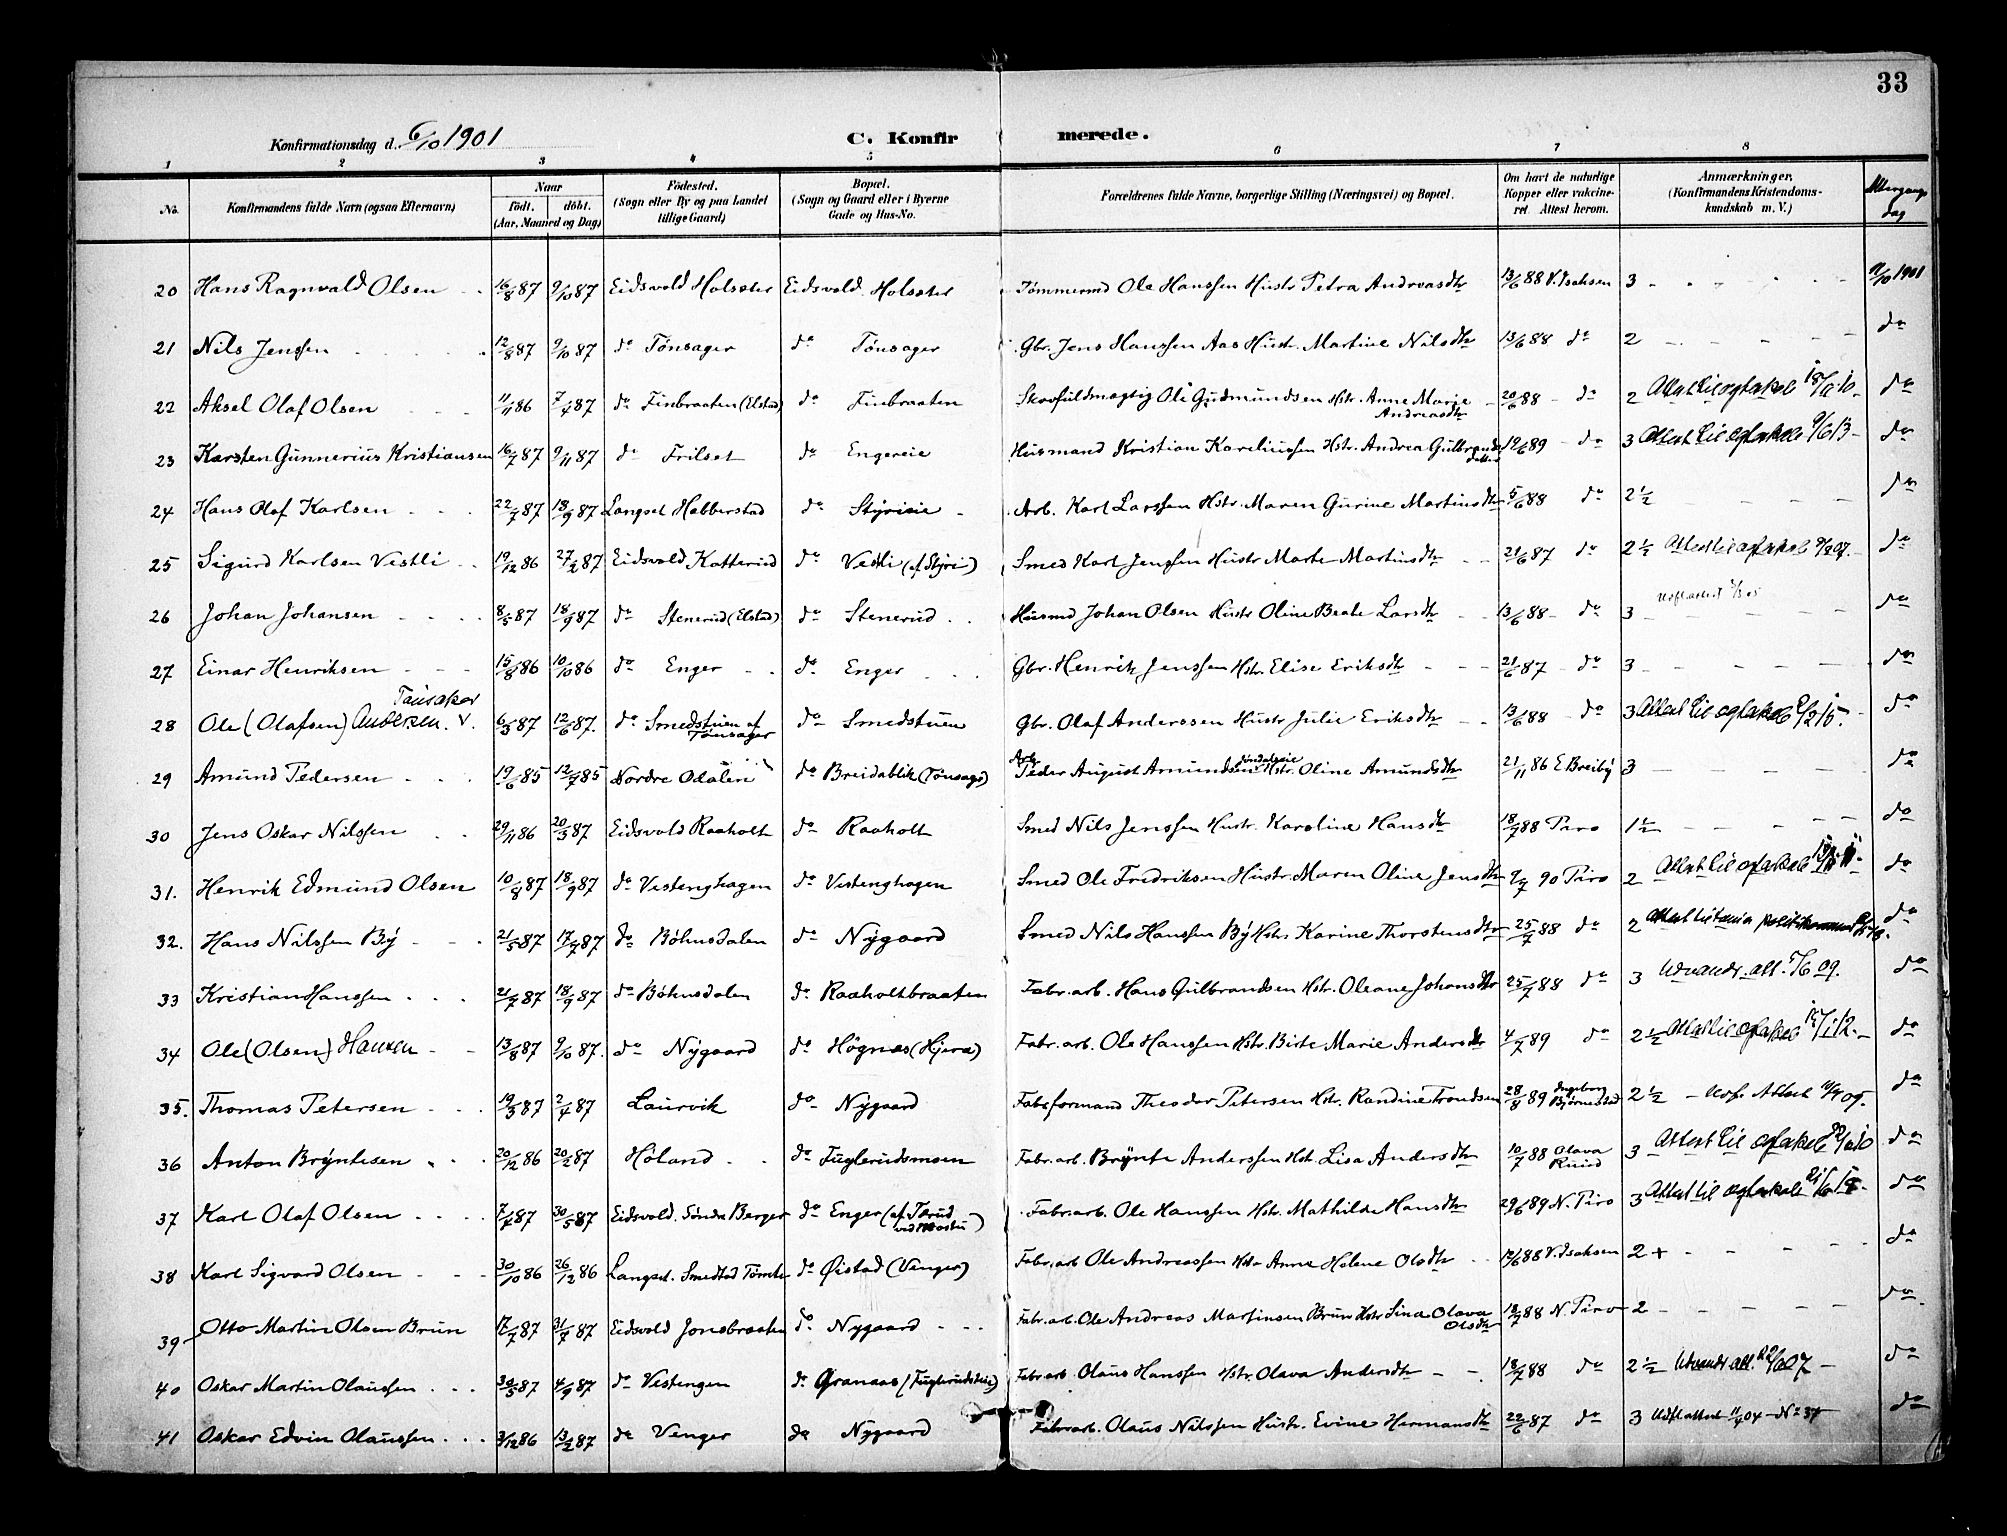 33
Konfirmationsdag d. 6/10 1901
C. Konfirmerede.
1 2 3 4 5 6 7 8
No. Konfirmandens fulde Navn (ogsaa Efternavn) Naar Födt. döbt. (Aar, Maaned og Dag) Födested. (Sogn eller By og paa Landet tillige Gaard) Bopæl. (Sogn og Gaard eller i Byerne Gade og Hus-No. Forældrenes fulde Navne, borgerlige Stilling (Næringsvei) og Bopæl. Om havt de naturlige Kopper eller vakcineret. Attest herom. Anmærkninger. (Konfirmandens Kristendomskundskab m. V.) dag
20 Hans Ragnvald Olsen 16/8 87 9/10 87 Eidsvold Holseter Eidsvold Holseter Tömmermd Ole Hanssen Hustr. Petra Andreasdtr 13/6 88 V. Isaksen 3 1901
21 Nils Jenssen 12/8 87 9/10 87 do Tönsager do Tönsager Gbr. Jens Hanssen Aas Hustr. Martine Nilsdtr 13/6 88 do 2 do
22 Aksel Olaf Olsen 11/11 86 7/4 87 do Finbraaten (Elstad) do Finbraaten Skovfuldmægtig Ole Gudmundsen Hstr. Anne Marie Andreasdtr 20/6 88 do 2 Attest til ogtaksb do
23 Karsten Gunnerius Kristiansen 16/7 87 9/11 87 do Frilset do Engereie Husmand Kristian Kareliussen Hstr. Andrea Gulbrandsdatter 19/6 89 do 3 Attest til ogtaksb do
24 Hans Olaf Karlsen 22/7 87 18/9 87 Langset Habberstad do Styrieie Arb. Karl Larssen Hstr. Maren Gurine Martinsdtr 5/6 88 do 2 1/2 do
25 Sigurd Karlsen Vestli 19/12 86 27/2 87 Eidsvold Katterud do Vestli (af Styri) Smed Karl Jenssen Hustr. Marte Martinsdtr 21/6 87 do 2 1/2 do
26 Johan Johansen 8/5 87 18/9 87 do Stenerud (Elstad) do Stenerud Husmd Johan Olsen Hustr. Oline Beate Larsdtr 13/6 88 do 3 do
27 Einar Henriksen 15/8 86 10/10 86 do Enger do Enger Gbr. Henrik Jenssen Hstr. Elise Eriksdtr 21/6 87 do 3 do
28 Ole (Olafsen) Andersen 6/3 87 12/6 87. do Smedstuen af Tönsager do Smedstuen Gbr. Olaf Anderssen Hustr. Julie Eriksdtr 13/6 88 do 3 do
29 Amund Pedersen 19/6 85 12/7 85 Nordre Odalen do Breidablik (Tönsager) Arb. Peder August Amundsen Hstr. Oline Amundsdtr 21/11 86 E Breiby 3 do
30 Jens Oskar Nilssen 29/11 86 20/3 87 Eidsvold Raaholt do Raaholt Smed Nils Jenssen Hustr. Karoline Hansdtr 18/7 88 Piro 1 1/2 do
31. Henrik Edmund Olsen 10/8 87 18/9 87 do Vestenghagen do Vestenghagen Smed Ole Fredriksen Hustr. Maren Oline Jensdtr 9/7 90 Piro 2 do
32. Hans Nilssen By 21/5 87 17/7 87 do Böhnsdalen do Nygaard Smed Nils Hanssen By Hstr. Karine Thorstensdtr 25/7 88 do 2 do
33 Kristian Hanssen 21/7 87 18/9 87 do Böhnsdalen do Raaholtbraaten Fabr. arb. Hans Gulbrandsen Hstr. Oleane Johansdtr 25/7 88 do 3 Udvandr. att. 5/6 09. do
34 Ole (Olsen) Hansen 13/8 87 9/10 87. do Nygaard do Högnæs (Hjera) Fabr. arb. Ole Hanssen Hstr. Birte Marie Andersdtr 4/7 89 do 2 1/2 do
35. Thomas Petersen 19/3 87 2/4 87 Laurvik do Nygaard Fabrformand Theodor Petersen Hstr. Randine Trondsen 28/8 89 Ingeborg Björnestad 2 1/2 do
36 Anton Bryntesen 20/12 86 20/2 87 Höland do Fuglerudsmoen Fabr. arb. Brynte Anderssen Hstr. Lisa Andersdtr 10/7 88 Olava Ruud 3 do
37 Karl Olaf Olsen 7/7 87 30/5 87 Eidsvold. Söndre Berger do Enger Fabr. arb. Ole Hanssen Hstr. Mathilde Hansdtr 29/6 89 N. Piro 3 do
38 Karl Sigvard Olsen 30/10 86 26/12 86 Langset. Smedstad do Öistad (Venger) Fabr. arb. Ole Andreassen Hstr. Anne Helene Olsdtr 88 V. Isaksen 2 + do
39 Otto Martin Olsen Brun 17/7 87 31/7 87 Eidsvold Jonsbraaten do Nygaard Fabr. arb. Ole Andreas Martinsen Brun Hstr. Lina Olava Olsdtr 18/7 88 N. Piro 2 do
40 Oskar Martin Olaussen 30/5 87 4/9 87 do Vestengen do Granaas Fabr. arb. Olaus Hanssen Hstr. Olava Andersdtr 18/7 88 do 2 1/2 do
41 Oskar Edvin Olaussen 3/12 86 13/2 87 do Venger do Nygaard Fabr. arb. Olaus Nilssen Hustr. Evine Hermansdtr 22/6 87 do 3 do